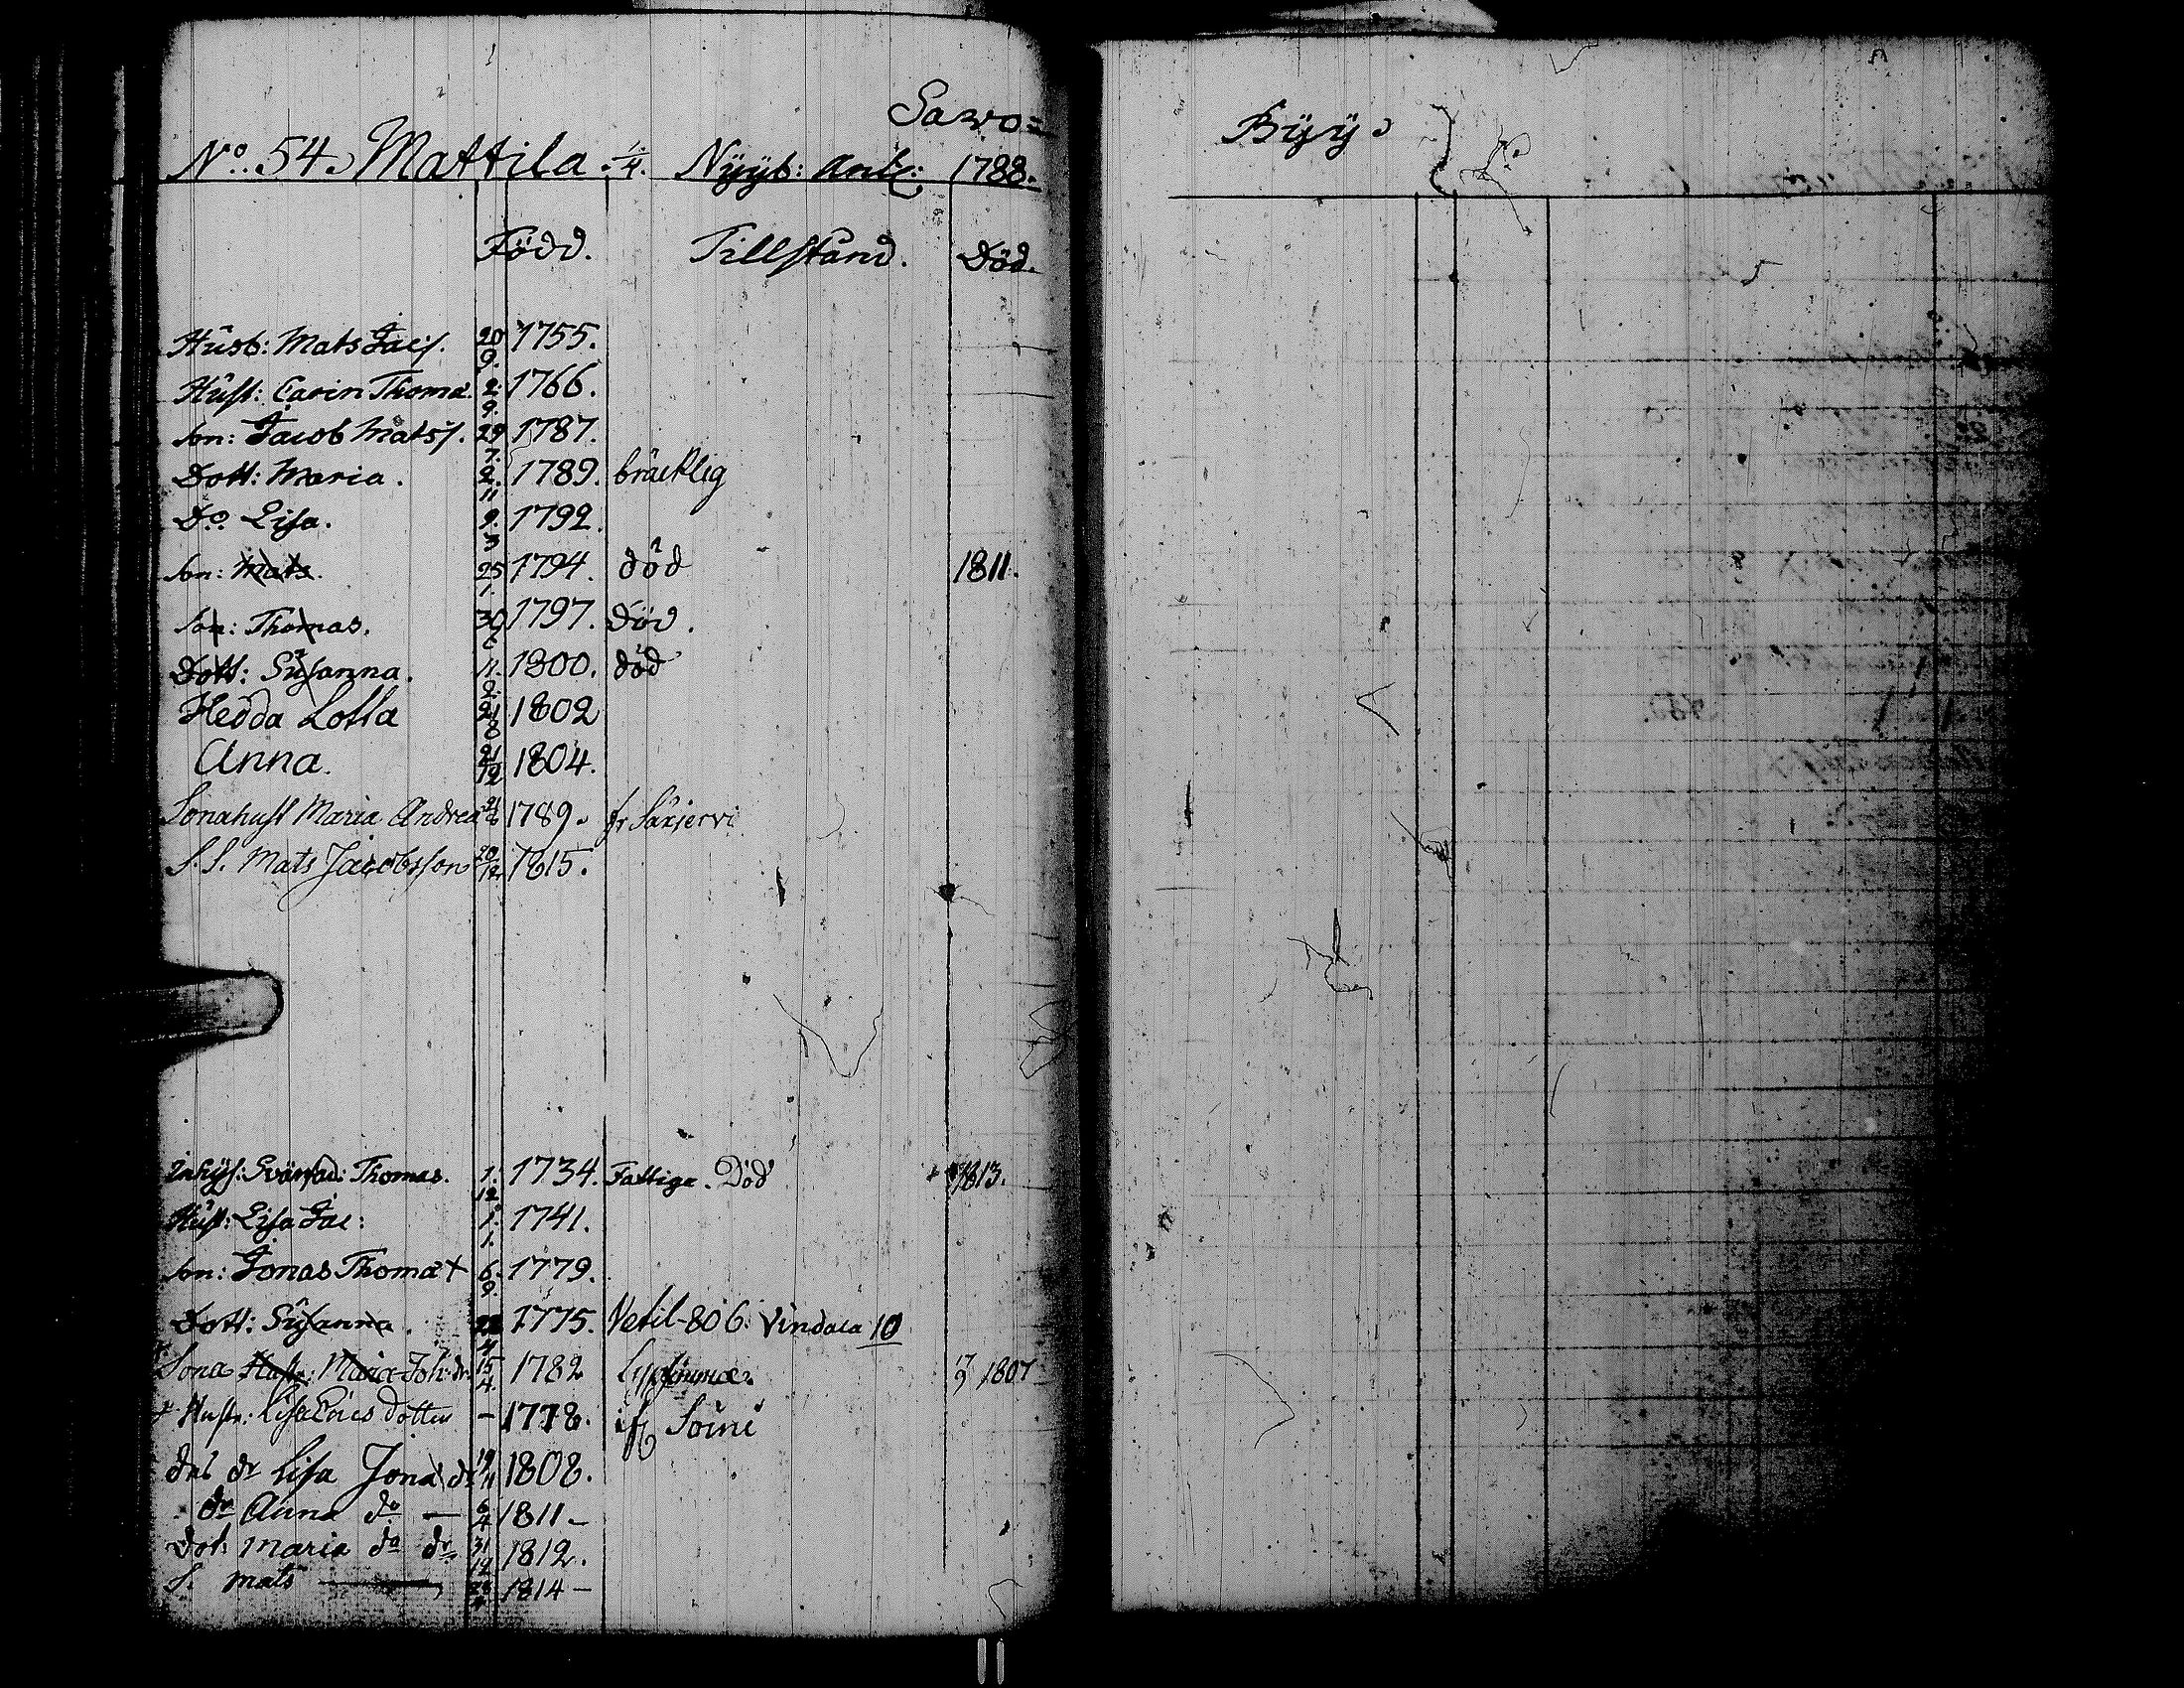 Sawo=
No. 54. Mattila. 1/4. Nÿÿb: Ant: 1788.
Bÿÿ
Född. Tillstånd. Död.
Husb: Mats Jacs. 20/9. 1755.
Hust: Carin Thomæ. 2/9. 1766.
Son: Jacob Matss. 29/7. 1787.
Dott: Maria. 2/11 1789. bräcklig
Do. Lisa. 9/3 1792.
Son: Mats. 25/1. 1794. död 1811.
Son: Thomas. 30/6 1797. död.
Dott: Susanna. 11/2 1800. död
Hedda Lotta 21/8 1802
Anna. 21/12 1804.
Sonahust Maria Andreæ 1789. fr Säxjervi
S. S. Mats Jacobsson 20/12 1815.
Inhÿs: Thomas. 1/12 1734. Fattiga. Död 1813.
Hust: Lisa Jac: 1/1. 1741.
Son: Jonas Thomæ + 6/9. 1779.
Dott: Susanna. 22/4 1775. Vetil-806. Vindala 10
Sona Hustr: Maria Joh: dr 15/4. 1782 1807
+ Hustr: Lisa Erics dotter - 1778. ifr Soini
des dr Lisa Jonæ dr 19/11 1808.
dr Anna do — 6/4 1811 -
Dot: Maria do do 31/12 1812.
S. Mats — 1814 -